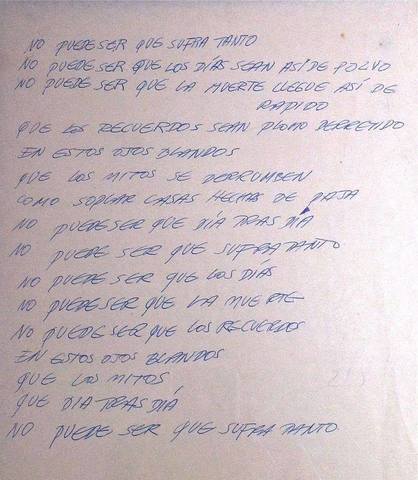 NO PUEDE SER QUE SUFRA TANTO
NO PUEDE SER QUE LOS DÍAS SEAN ASÍ DE POLVO
NO PUEDE SER QUE LA MUERTE LLEGUE ASÍ DE
RÁPIDO
QUE LOS RECUERDOS SEAN PLOMO DERRETIDO
EN ESTOS OJOS BLANDOS
QUE LOS MITOS SE DERRUMBEN
COMO SOPLAR CASAS HECHAS DE PAJA
NO PUEDE SER QUE DÍA TRAS DÍA
NO PUEDE SER QUE SUFRA TANTO
NO PUEDE SER QUE LOS DÍAS
NO PUEDE SER QUE LA MUERTE
NO PUEDE SER QUE LOS RECUERDOS
EN ESTOS OJOS BLANDOS
QUE LOS MITOS
QUE DIA TRAS DIÁ
NO PUEDE SER QUE SUFRA TANTO